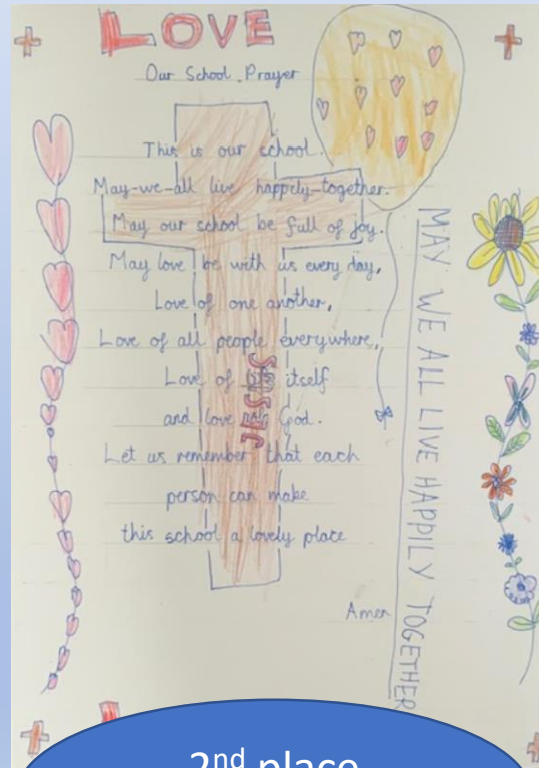 LOVE
Our School Prayer
This is our school.
May we all live happely together.
May our school be full of joy.
May love be with us every day,
Love of one another,
Love of all people everywhere,
Love of itself
and love God.
Let us remember that each
person can make
this school a lovely place
Amen
JESUS
MAY WE ALL LIVE HAPPILY TOGETHER
2nd place